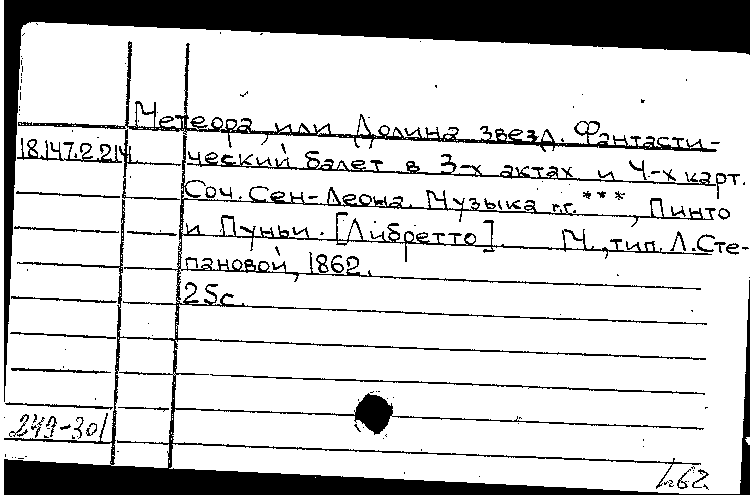 Метеора, или Долина звезд. Фантасти-
18.147.2.214 ческий балет в 3-х актах и 4-х карт.
Соч. Сен-Леона. Музыка г.г. ***, Пинто
и Пуньи. [Либретто]. М., тип. Л.Сте-
пановой, 1862.
25с.
249-301